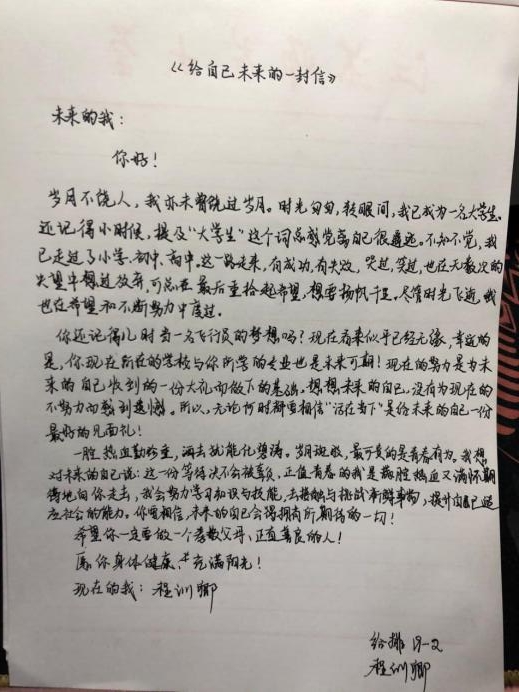 《给自己未来的一封信》
未来的我：
你好！
岁月不饶人，我亦未曾饶过岁月。时光匆匆，转眼间，我已成为一名大学生。
还记得小时候，提及“大学生”这个词总感觉离自己很遥远。不知不觉，我
已走过了小学、初中、高中。这一路走来，有成功，有失败，哭过，笑过，也在无数次的
失望中想过放弃，可总在最后重拾起希望，想要扬帆千里。尽管时光飞逝，我
也在希望和不断努力中度过。
你还记得儿时当一名飞行员的梦想吗？现在看来似乎已经无缘，幸运的
是，你现在所在的学校与你所学的专业也是未来可期！现在的努力是为未
来的自己收到的一份大礼而做下的基础。想想未来的自己，没有为现在的
不努力而感到遗憾。所以，无论何时都要相信“活在当下”是给未来的自己一份
最好的见面礼！
一腔热血勤珍重，洒去犹能化碧涛。岁月斑驳，最可贵的是青春有为。我想
对未来的自己说：这一份等待决不会被辜负，正值青春的我是满腔热血又满怀期
待地向你走去，我会努力学习知识与技能，去接触与挑战新鲜事物，提升自己适
应社会的能力。你要相信，未来的自己会得拥有所期待的一切！
希望你一定要做一个孝敬父母、正直善良的人！
愿你身体健康、充满阳光！
现在的我：程训卿
给排19-2
程训卿